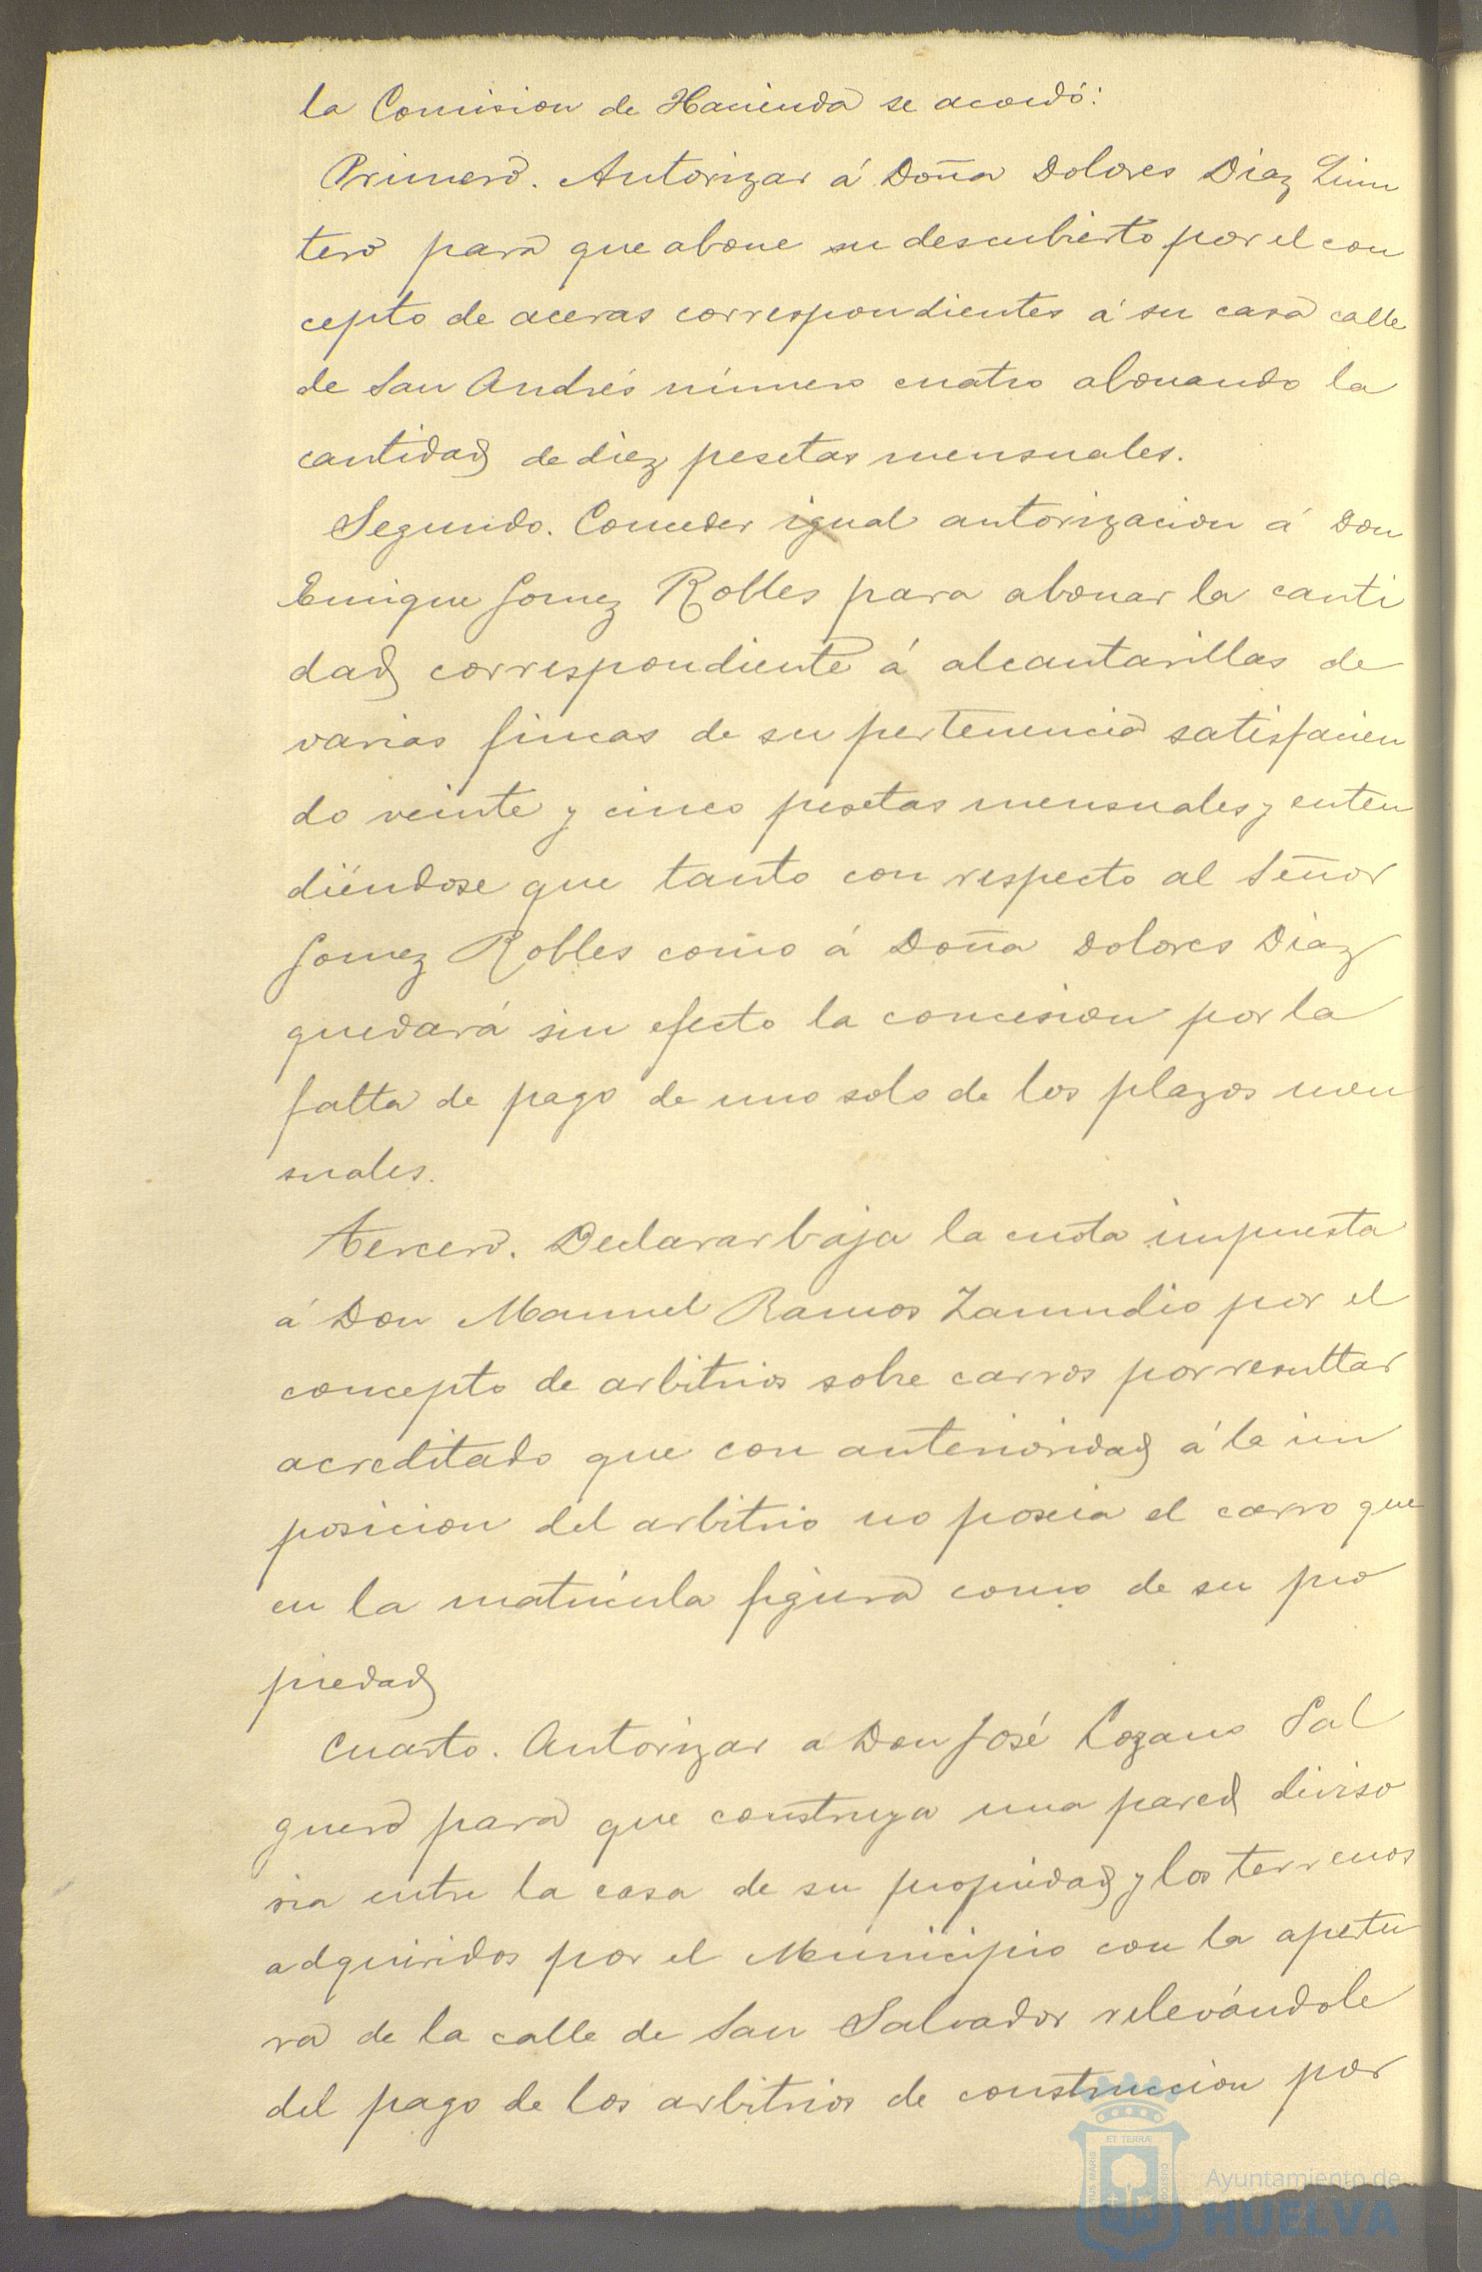 la Comision de Hacienda se acordó:
Primero. Autorizar á Doña Dolores Diaz Quin
tero para que abone su descubierto por el con
cepto de aceras correspondientes á su casa calle
de San Andrés número cuatro abonando la
cantidad de diez pesetas mensuales.
Segundo. Conceder igual autorizacion á Don
Enrique Gomez Robles para abonar la canti
dad correspondiente á alcantarillas de
varias fincas de su pertenencia satisfacien
do veinte y cinco pesetas mensuales y enten
diéndose que tanto con respecto al Señor
Gomez Robles como á Doña Dolores Diaz
quedará sin efecto la concesion por la
falta de pago de uno solo de los plazos men
suales.
Tercero. Declarar baja la cuota impuesta
á Don Manuel Ramos Zamudio por el
concepto de arbitrios sobre carros por resultar
acreditado que con anterioridad á la im
posicion del arbitrio no poseia el carro que
en la matrícula figura como de su pro
piedad
Cuarto. Autorizar a Don José Lozano Sal
guero para que construya una pared diviso
ria entre la casa de su propiedad y los terrenos
adquiridos por el Municipio con la apertu
ra de la calle de San Salvador relevándole
del pago de los arbitrios de construccion por
ET TERRÆ
Ayuntamiento de
HUELVA